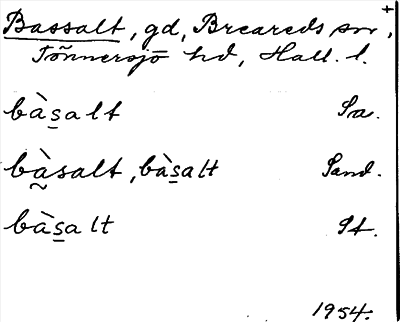 Bassalt, gd, Breareds sn, +
Tõnnersjö hd, Hall. l.
bàs̱alt Sa.
bà̰salt, bàs̱alt Sand.
bàs̱alt St.
1954.